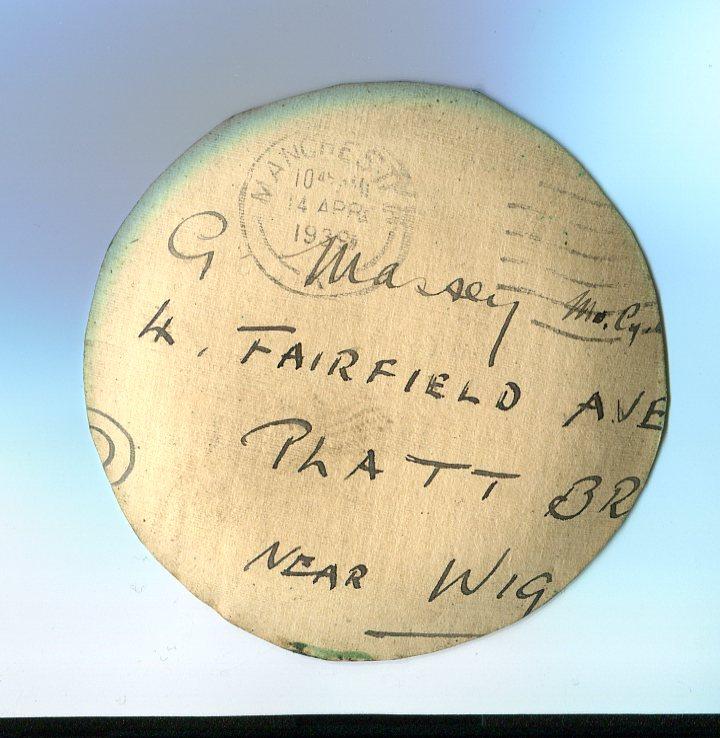 MANCHEST
10
14 APR
193
G Massey Mr. Cy
4. FAIRFIELD AVE
PLATT BR
NEAR WIG